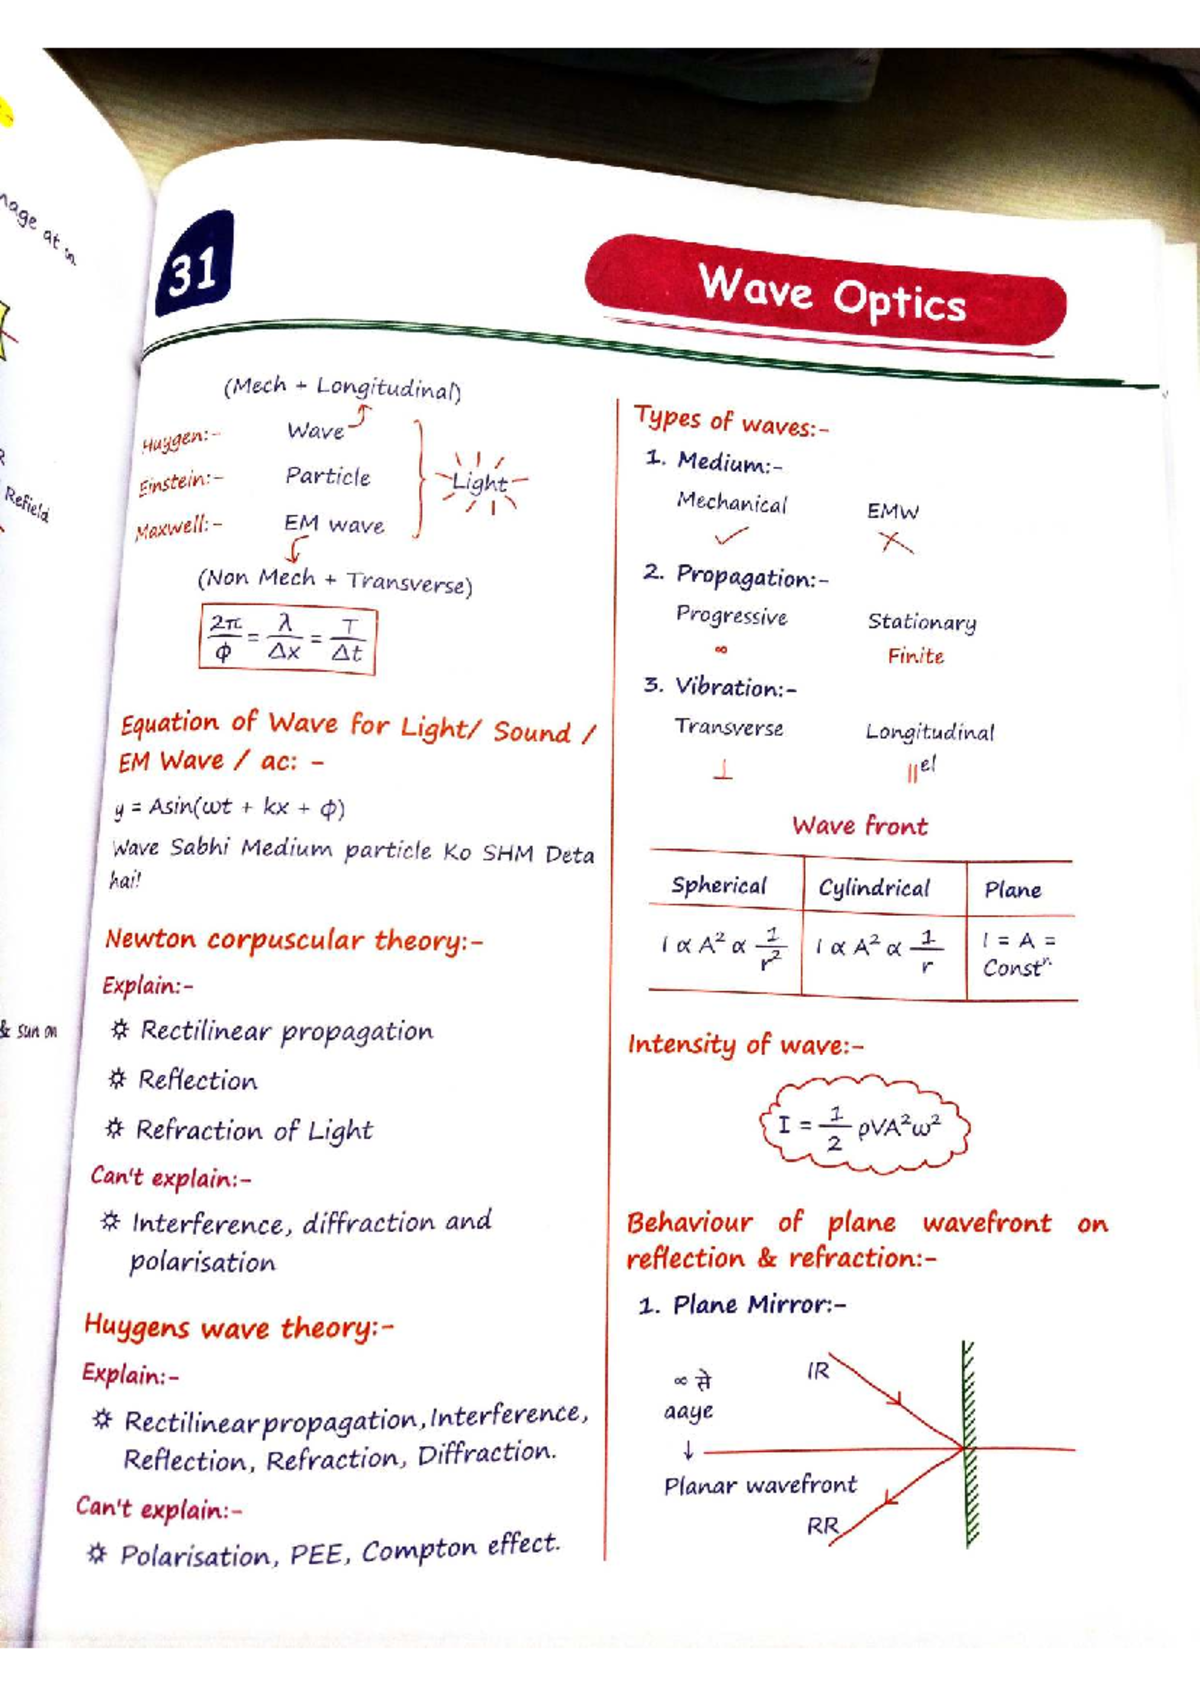 mage at ∞
Refield
& sun on
31
Wave Optics
(Mech + Longitudinal)
Huygen:- Wave
Einstein:- Particle
Maxwell:- EM wave
Light
(Non Mech + Transverse)
2π/ϕ = λ/Δx = T/Δt
Equation of Wave for Light/ Sound /
EM Wave / ac: -
y = Asin(ωt + kx + ϕ)
Wave Sabhi Medium particle Ko SHM Deta
hai!
Newton corpuscular theory:-
Explain:-
☼ Rectilinear propagation
☼ Reflection
☼ Refraction of Light
Can't explain:-
☼ Interference, diffraction and
polarisation
Huygens wave theory:-
Explain:-
☼ Rectilinear propagation, Interference,
Reflection, Refraction, Diffraction.
Can't explain:-
☼ Polarisation, PEE, Compton effect.
Types of waves:-
1. Medium:-
Mechanical EMW
✓ ✗
2. Propagation:-
Progressive Stationary
∞ Finite
3. Vibration:-
Transverse Longitudinal
⊥ ||el
Wave front
Spherical Cylindrical Plane
I ∝ A² ∝ 1/r² I ∝ A² ∝ 1/r I = A =
Constⁿ·
Intensity of wave:-
I = 1/2 ρVA²ω²
Behaviour of plane wavefront on
reflection & refraction:-
1. Plane Mirror:-
∞ से IR
aaye
↓
Planar wavefront
RR